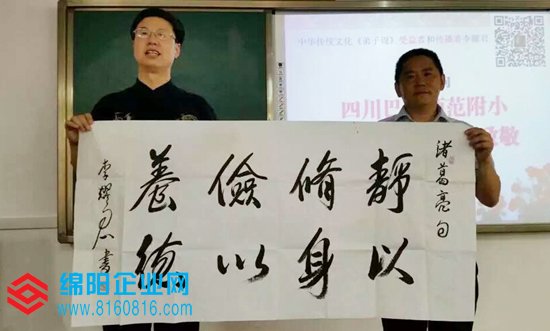 中华传统文化《弟子规》受益者和传播者李耀君
四川巴 范附小
敬
诸葛亮句
靜以
脩身
儉以
養德
李耀君書
绵阳企业网
www.8160816.com